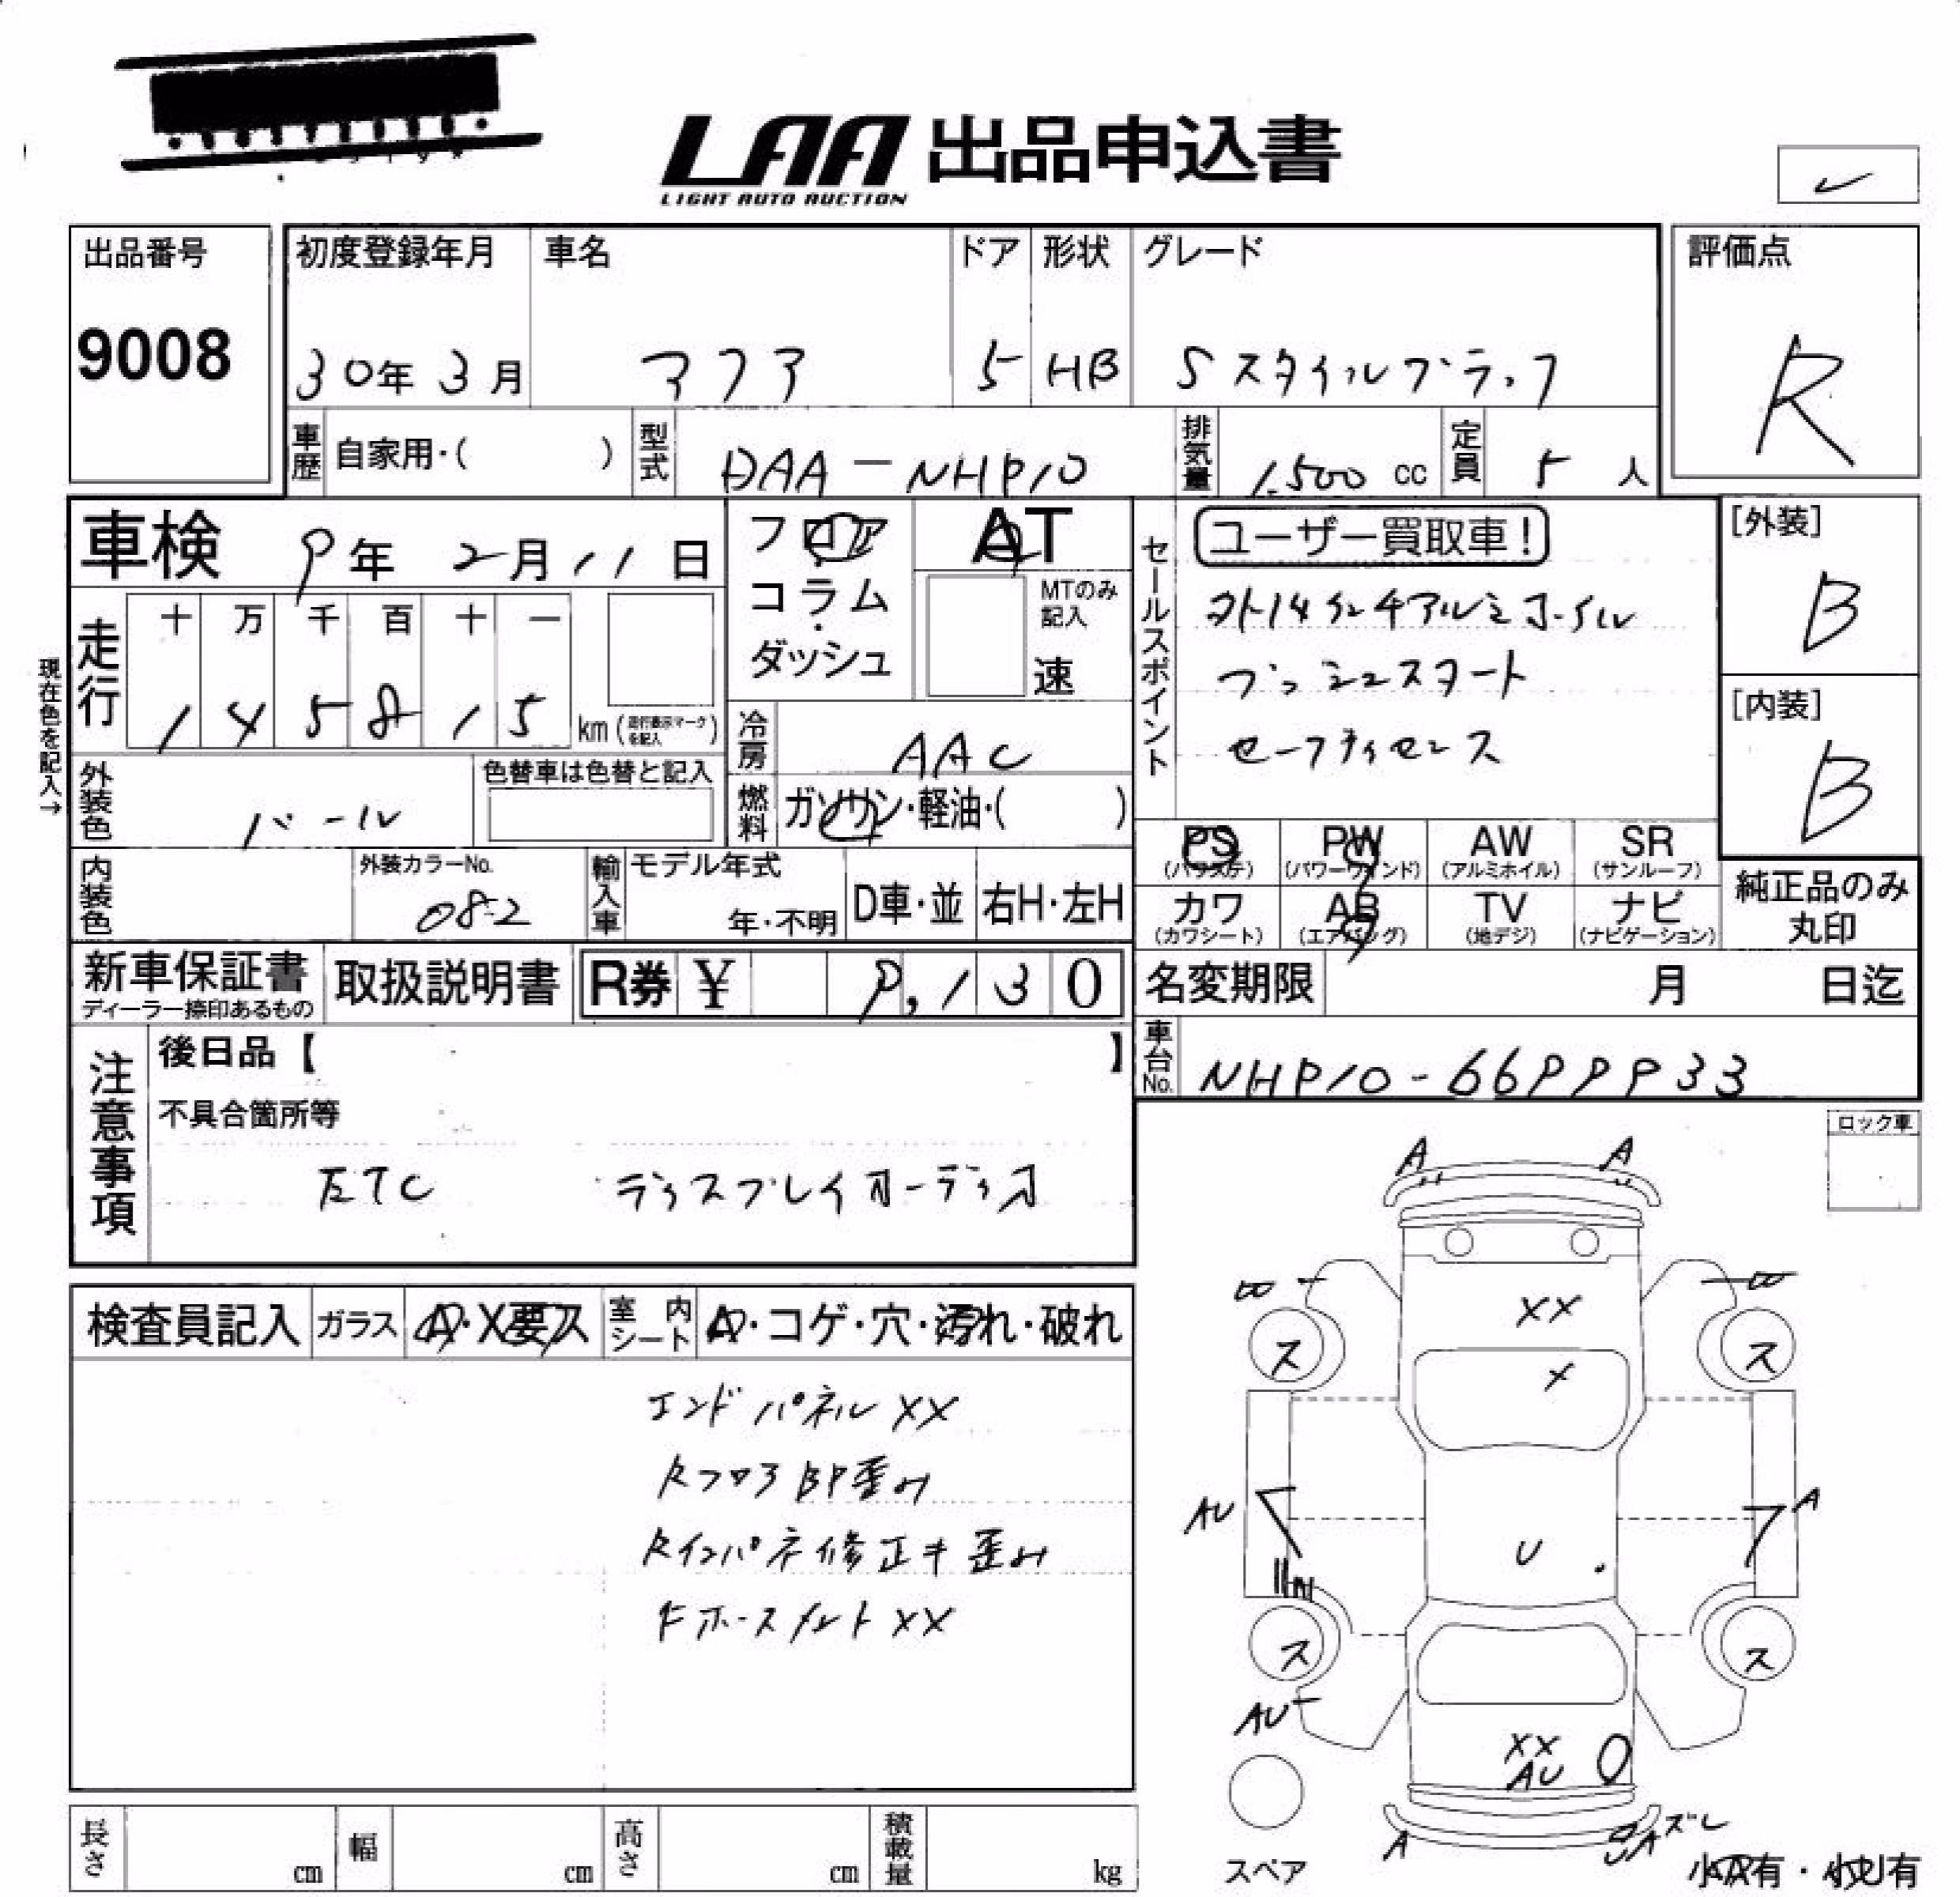 LAA 出品申込書
LIGHT AUTO AUCTION
出品番号 初度登録年月 車名 ドア 形状 グレード 評価点
9008 30年 3月 アクア 5 HB Sスタイルブラック R
車歴 自家用・( ) 型式 DAA-NHP10 排気量 1,500 cc 定員 5 人
車検 9年 2月 11日
フロア
コラム・
ダッシュ
AT
MTのみ記入
速
セールスポイント
ユーザー買取車!
外14インチアルミホイル
プッシュスタート
セーフティセンス
[外装]
B
[内装]
B
現在色を記入→
走行 十 万 千 百 十 一
1 4 5 8 1 5 km (走行表示マークを記入)
冷房 AAC
外装色 パール 色替車は色替と記入
燃料 ガソリン・軽油・( )
PS (パワステ) PW (パワーウインド) AW (アルミホイル) SR (サンルーフ)
カワ (カワシート) AB (エアバッグ) TV (地デジ) ナビ (ナビゲーション)
純正品のみ
丸印
内装色 外装カラーNo. 082 輸入車 モデル年式 年・不明 D車・並 右H・左H
新車保証書 ディーラー捺印あるもの 取扱説明書 R券 ¥ 9,130
名変期限 月 日迄
車台No. NHP10-6699933
注意事項
後日品【 】
不具合箇所等
ETC ディスプレイオーディオ
ロック車
検査員記入 ガラス A・X要ス 室内シート A・コゲ・穴・汚れ・破れ
エンドパネル XX
Rフロア BP歪み
Rインパネ修正キ歪み
Fホースメント XX
A A
XX
X
ス ス
AU A
U
ス ス
AU
XX
AU
A UA ズレ
スペア
小A有・小U有
長さ cm 幅 cm 高さ cm 積載量 kg